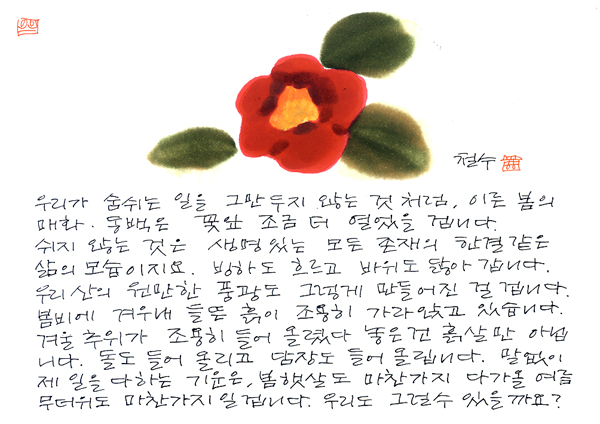 철수
우리가 숨쉬는 일을 그만두지 않는 것처럼, 이른 봄의
매화·동백은 꽃잎 조금 더 열었을 겁니다.
쉬지 않는 것은 생명있는 모든 존재의 한결같은
삶의 모습이지요. 빙하도 흐르고 바위도 닳아 갑니다.
우리 산의 원만한 풍광도 그렇게 만들어진 걸 겁니다.
봄비에 겨우내 들뜬 흙이 조용히 가라앉고 있습니다.
겨울 추위가 조용히 들어 올렸다 놓은건 흙살만 아닙
니다. 돌도 들어 올리고 담장도 들어 올립니다. 말없이
제 일을 다하는 기운은, 봄햇살도 마찬가지 다가올 여름
무더위도 마찬가지일 겁니다. 우리도 그럴수 있을까요?